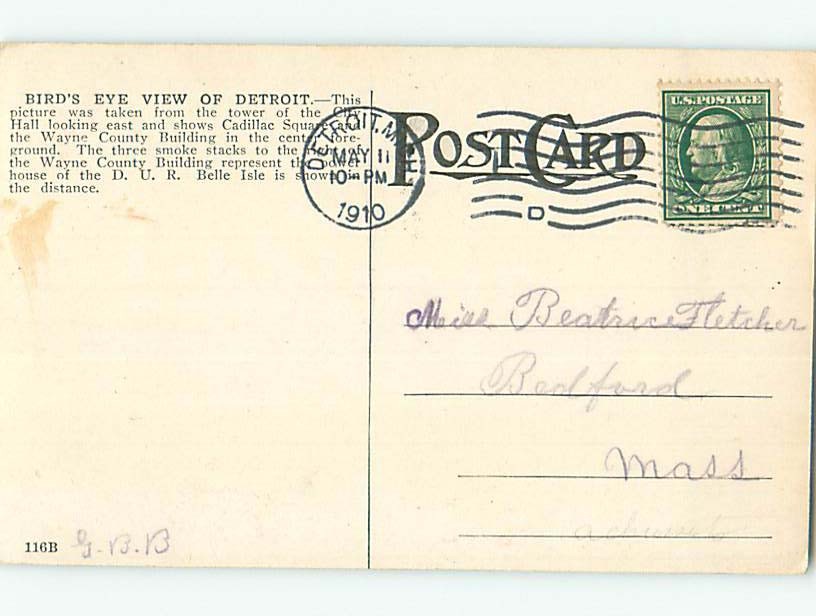 BIRD'S EYE VIEW OF DETROIT.—This
picture was taken from the tower of the City
Hall looking east and shows Cadillac Square and
the Wayne County Building in the center fore-
ground. The three smoke stacks to the right of
the Wayne County Building represent the power
house of the D. U. R. Belle Isle is shown in
the distance.
POST CARD
DETROIT, MICH.
MAY 11
10-PM
1910
D
U.S. POSTAGE
ONE CENT
Miss Beatrice Fletcher
Bedford
Mass
116B G.B.B